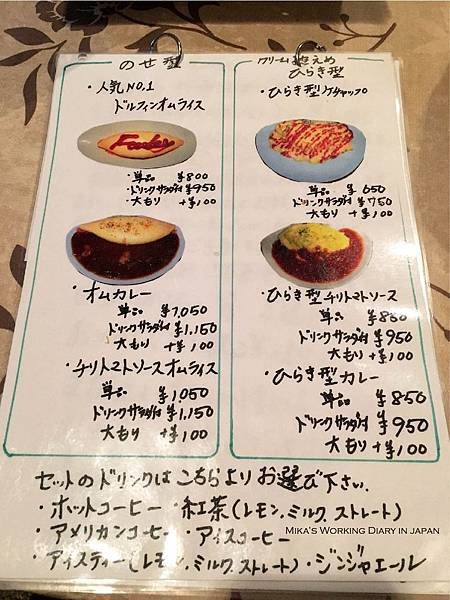 のせ型
・人気NO.1
ドルフィンオムライス
・単品 ¥800
・ドリンクサラダ付 ¥950
・大もり +¥100
・オムカレー
単品 ¥1,050
ドリンクサラダ付 ¥1,150
大もり +¥100
・チリトマトソースオムライス
単品 ¥1050
ドリンクサラダ付 ¥1,150
大もり +¥100
クリーム控えめ
ひらき型
・ひらき型ケチャップ
単品 ¥650
ドリンクサラダ付 ¥750
大もり +¥100
・ひらき型チリトマトソース
単品 ¥850
ドリンクサラダ付 ¥950
大もり +¥100
・ひらき型カレー
単品 ¥850
ドリンクサラダ付 ¥950
大もり +¥100
セットのドリンクはこちらよりお選び下さい.
・ホットコーヒー ・紅茶(レモン,ミルク,ストレート)
MIKA'S WORKING DIARY IN JAPAN
・アメリカンコーヒー ・アイスコーヒー
・アイスティー(レモン,ミルク,ストレート)・ジンジャエール